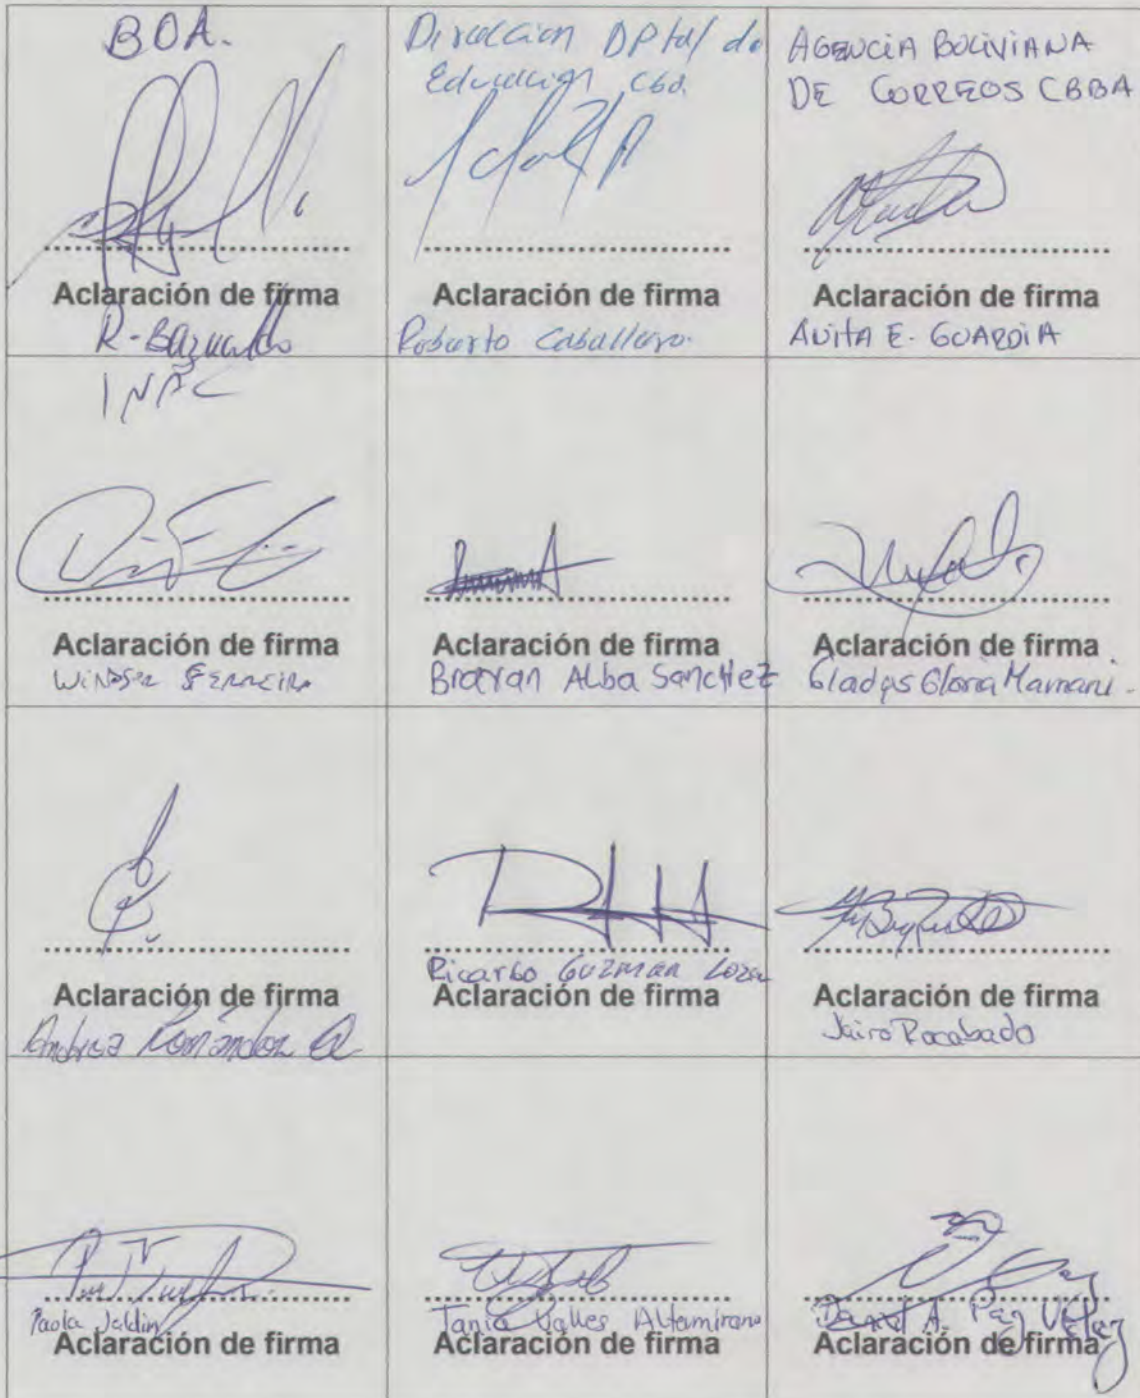 BOA.
Aclaración de firma
R-Bazualdo
Dirección DPtal de
Educación Cbd.
Aclaración de firma
Roberto Caballero.
AGENCIA BOLIVIANA
DE CORREOS CBBA
Aclaración de firma
ANITA E. GUARDIA
INAC
Aclaración de firma
WINDSOR FERREIRA
Aclaración de firma
Brayan Alba Sanchez
Aclaración de firma
Gladys Gloria Mamani.
Aclaración de firma
Andrea
Ricardo Guzman Loza
Aclaración de firma
Aclaración de firma
Jairo Rocabado
Paola Jaldin
Aclaración de firma
Tania Valles Altamirano
Aclaración de firma
A. Paz Vélez
Aclaración de firma